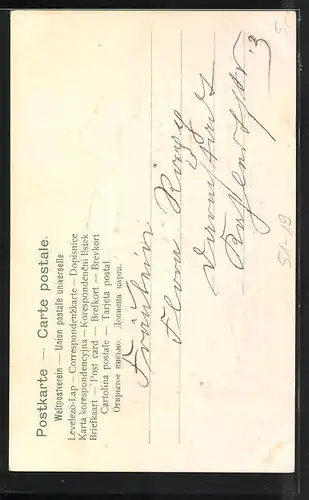 Postkarte — Carte postale.
Weltpostverein — Union postale universelle
Levelező-Lap — Correspondenzkarte — Dopisnice
Karta korespondencyjna — Korespondenční lístek
Briefkaart — Post card — Brefkort — Brevkort
Cartolina postale — Tarjeta postal
Открытое письмо. Дописна карта.
Fräulein
Flora
Darmstadt